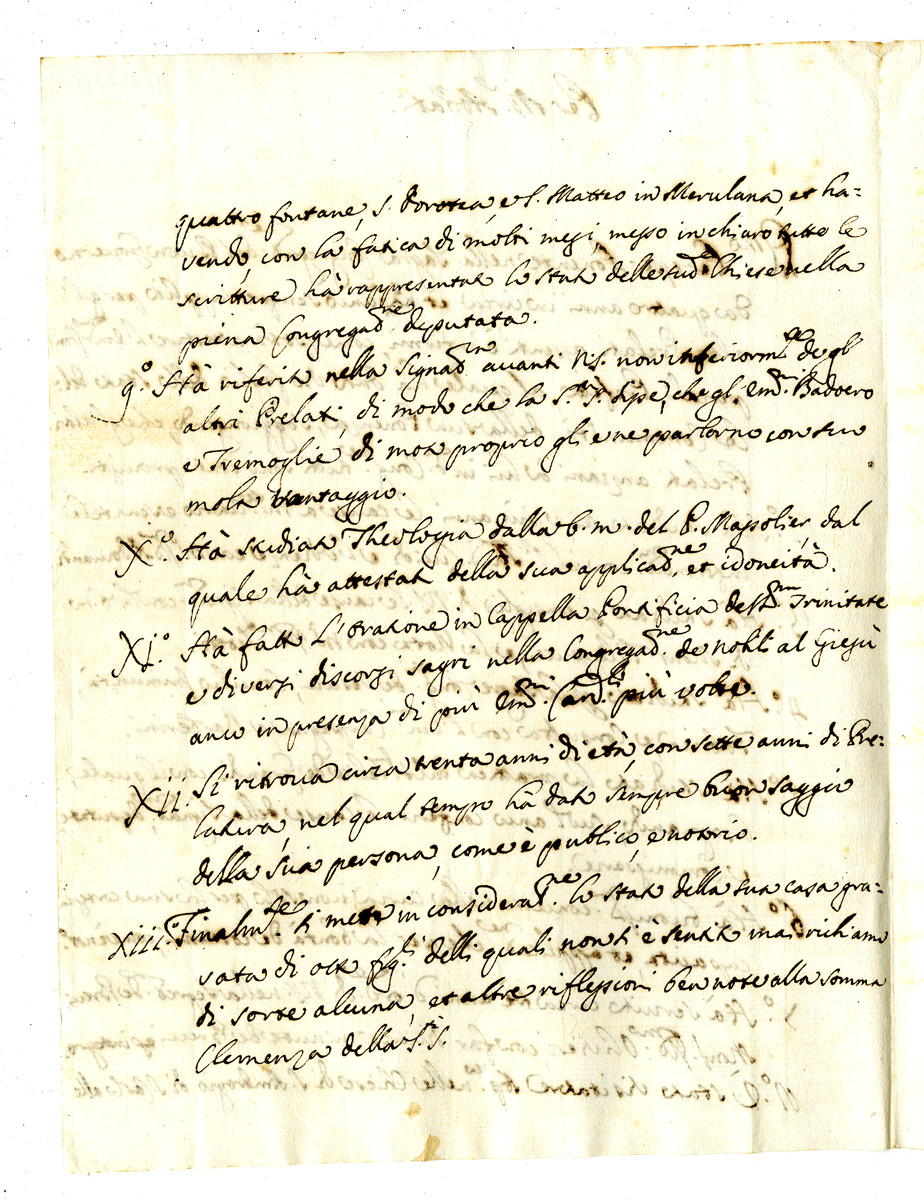 quattro fontane, S. Dorotea, e S. Matteo in Merulana, et ha=
vendo, con la fatica di molti mesi, messo in chiaro tutte le
scritture hà rappresentato lo stato delle sud.e Chiese nella
piena Congregaz.ne deputata.
9.o Hà riferito nella Signat.ra avanti N.S. non inferiorm.te degl'
altri Prelati, di modo che la S.tà S. disse, che gl'Em.mi Badoero
e Tremoglie di moto proprio gliene parlorno con suo
molto vantaggio.
X.o Hà studiato Theologia dalla b.m. del P. Massolier, dal
quale hà attestato della sua applicaz.ne, et idoneità.
XI.o Hà fatto l'oratione in Cappella Pontificia de SS.ma Trinitate
e diversi discorsi sagri nella Congregaz.ne de nobili al Giesù
anco in presenza di più Em.mi Card.li più volte.
XII. Si ritrova circa trenta anni di età, con sette anni di Pre=
latura, nel qual tempo hà dato sempre buon saggio
della sua persona, come è publico, e notorio.
XIII.o Finalm.te si mette in considerat.ne lo stato della sua casa gra=
vata di otto figli delli quali non si è sentito mai richiamo
di sorte alcuna, et altre riflessioni ben note alla somma
Clemenza della S.tà S.